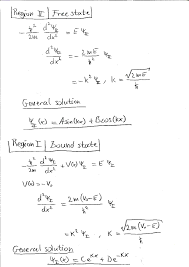 Region II | Free state
- ħ²/2m d²Ψ_II/dx² = E Ψ_II
d²Ψ_II/dx² = - 2mE/ħ² Ψ_II
= -k² Ψ_II , K = √2mE/ħ
General solution
Ψ_II(x) = A sin(kx) + B cos(kx)
Region I | Bound state
- ħ²/2m d²Ψ_I/dx² + V(x) Ψ_I = E Ψ_I
V(x) = -V₀
d²Ψ_I/dx² = 2m(V₀-E)/ħ² Ψ_I
= K² Ψ_I , K = √2m(V₀-E)/ħ
General solution
Ψ_I(x) = C e^Kx + D e^-Kx